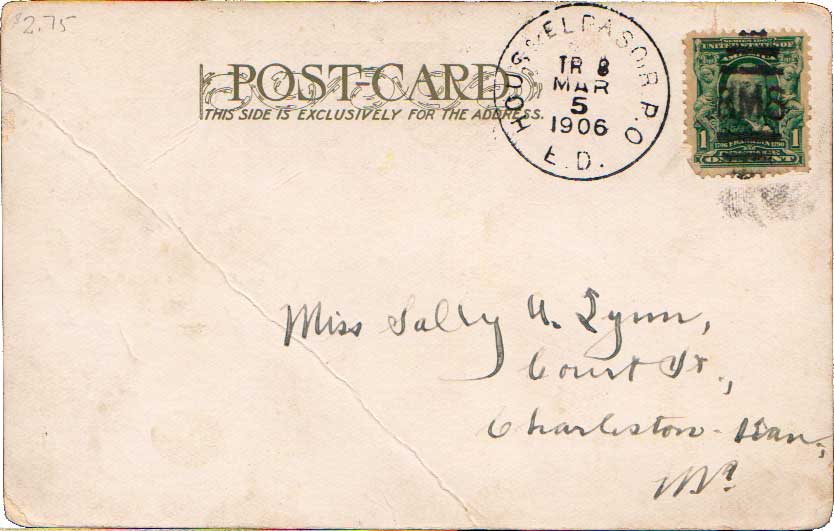 $2.75
POST-CARD
THIS SIDE IS EXCLUSIVELY FOR THE ADDRESS.
HOUS & EL PASO R.P.O
TR 8
MAR
5
1906
E.D.
UNITED STATES OF
AMERICA
RMS
1 1
ONE CENT
Miss Sally A. Lynn,
Court St.,
Charleston-Kan,